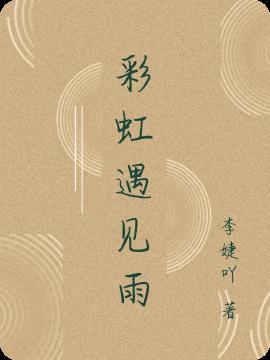 彩虹遇见雨
李婕吖 著